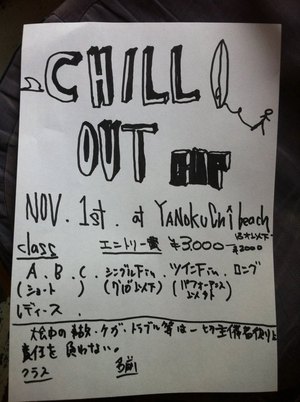 CHILL
OUT CUP
NOV. 1st. at YANOKUChi beach
class エントリー費 ¥3000
¥2000
A. B. C. シングルFin. ツインFin. ロング
(ショート)
レディース.
大会中の事故・ケガ・トラブル等は一切主催者側は
責任を負わない。
クラス 名前